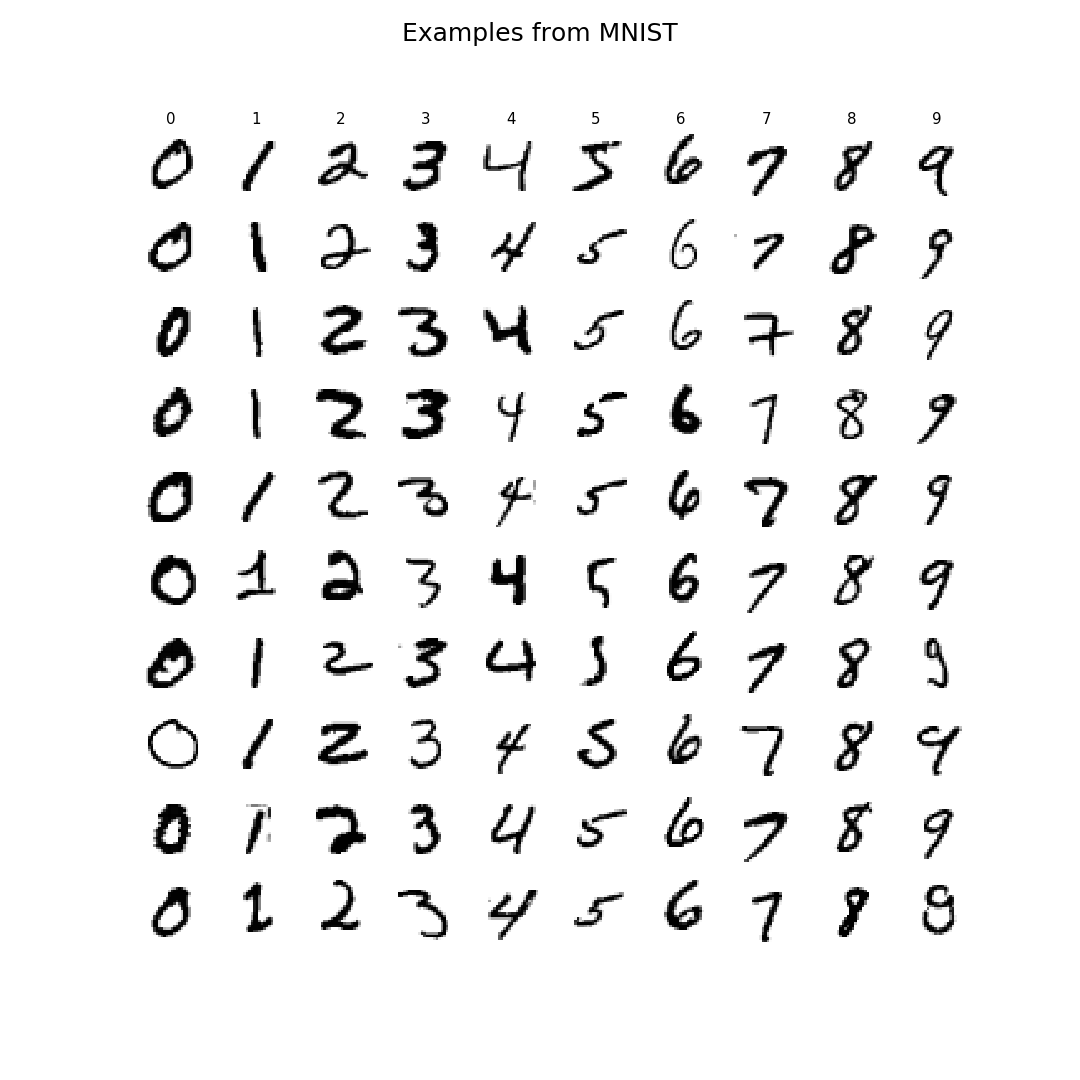 Examples from MNIST
0 1 2 3 4 5 6 7 8 9
0 1 2 3 4 5 6 7 8 9
0 1 2 3 4 5 6 7 8 9
0 1 2 3 4 5 6 7 8 9
0 1 2 3 4 5 6 7 8 9
0 1 2 3 4 5 6 7 8 9
0 1 2 3 4 5 6 7 8 9
0 1 2 3 4 5 6 7 8 9
0 1 2 3 4 5 6 7 8 9
0 1 2 3 4 5 6 7 8 9
0 1 2 3 4 5 6 7 8 9